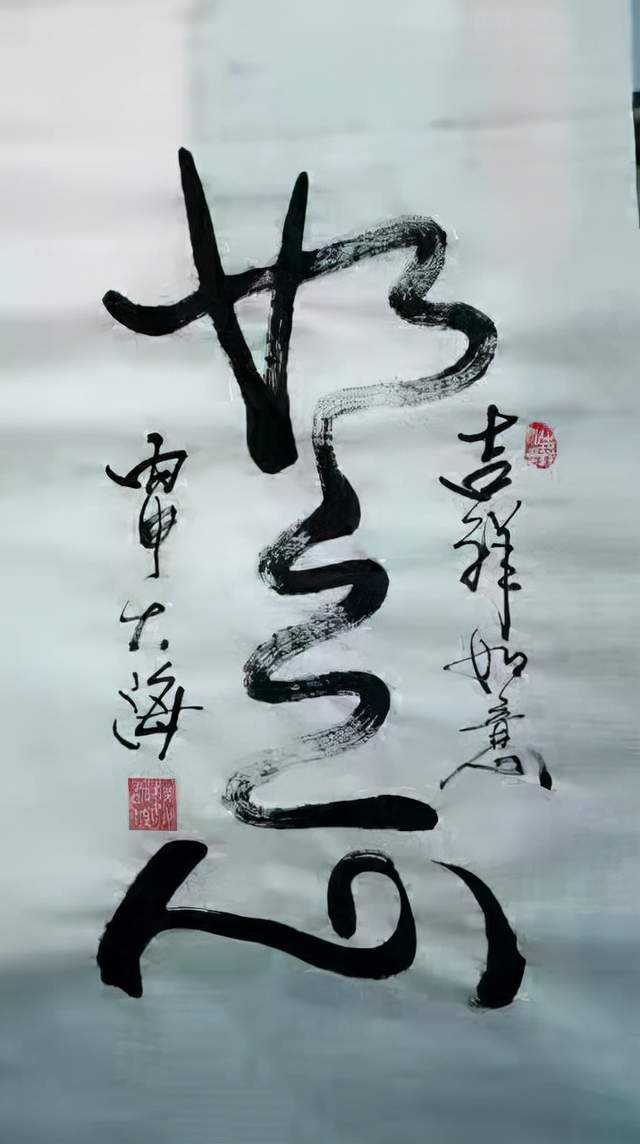 吉祥如意
如意
丙申大海